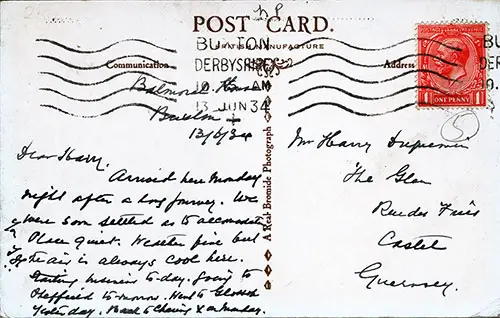 POST CARD.
BRITISH MANUFACTURE
Communication
Address
BUXTON
DERBYSHIRE
AM
13 JUN 34
ONE PENNY
A Real Bromide Photograph
5
Buxton
13/6/34
Dear Harry,
Arrived here Monday
night after a long journey. We
were soon settled as to accomodation
Place quiet. Weather fine but
the air is always cool here.
Starting business to-day. Going to
Sheffield to-morrow. Went to Glossop
Yesterday. Back to Charing X on Monday.
Mr Harry
The Glen
Castel
Guernsey.